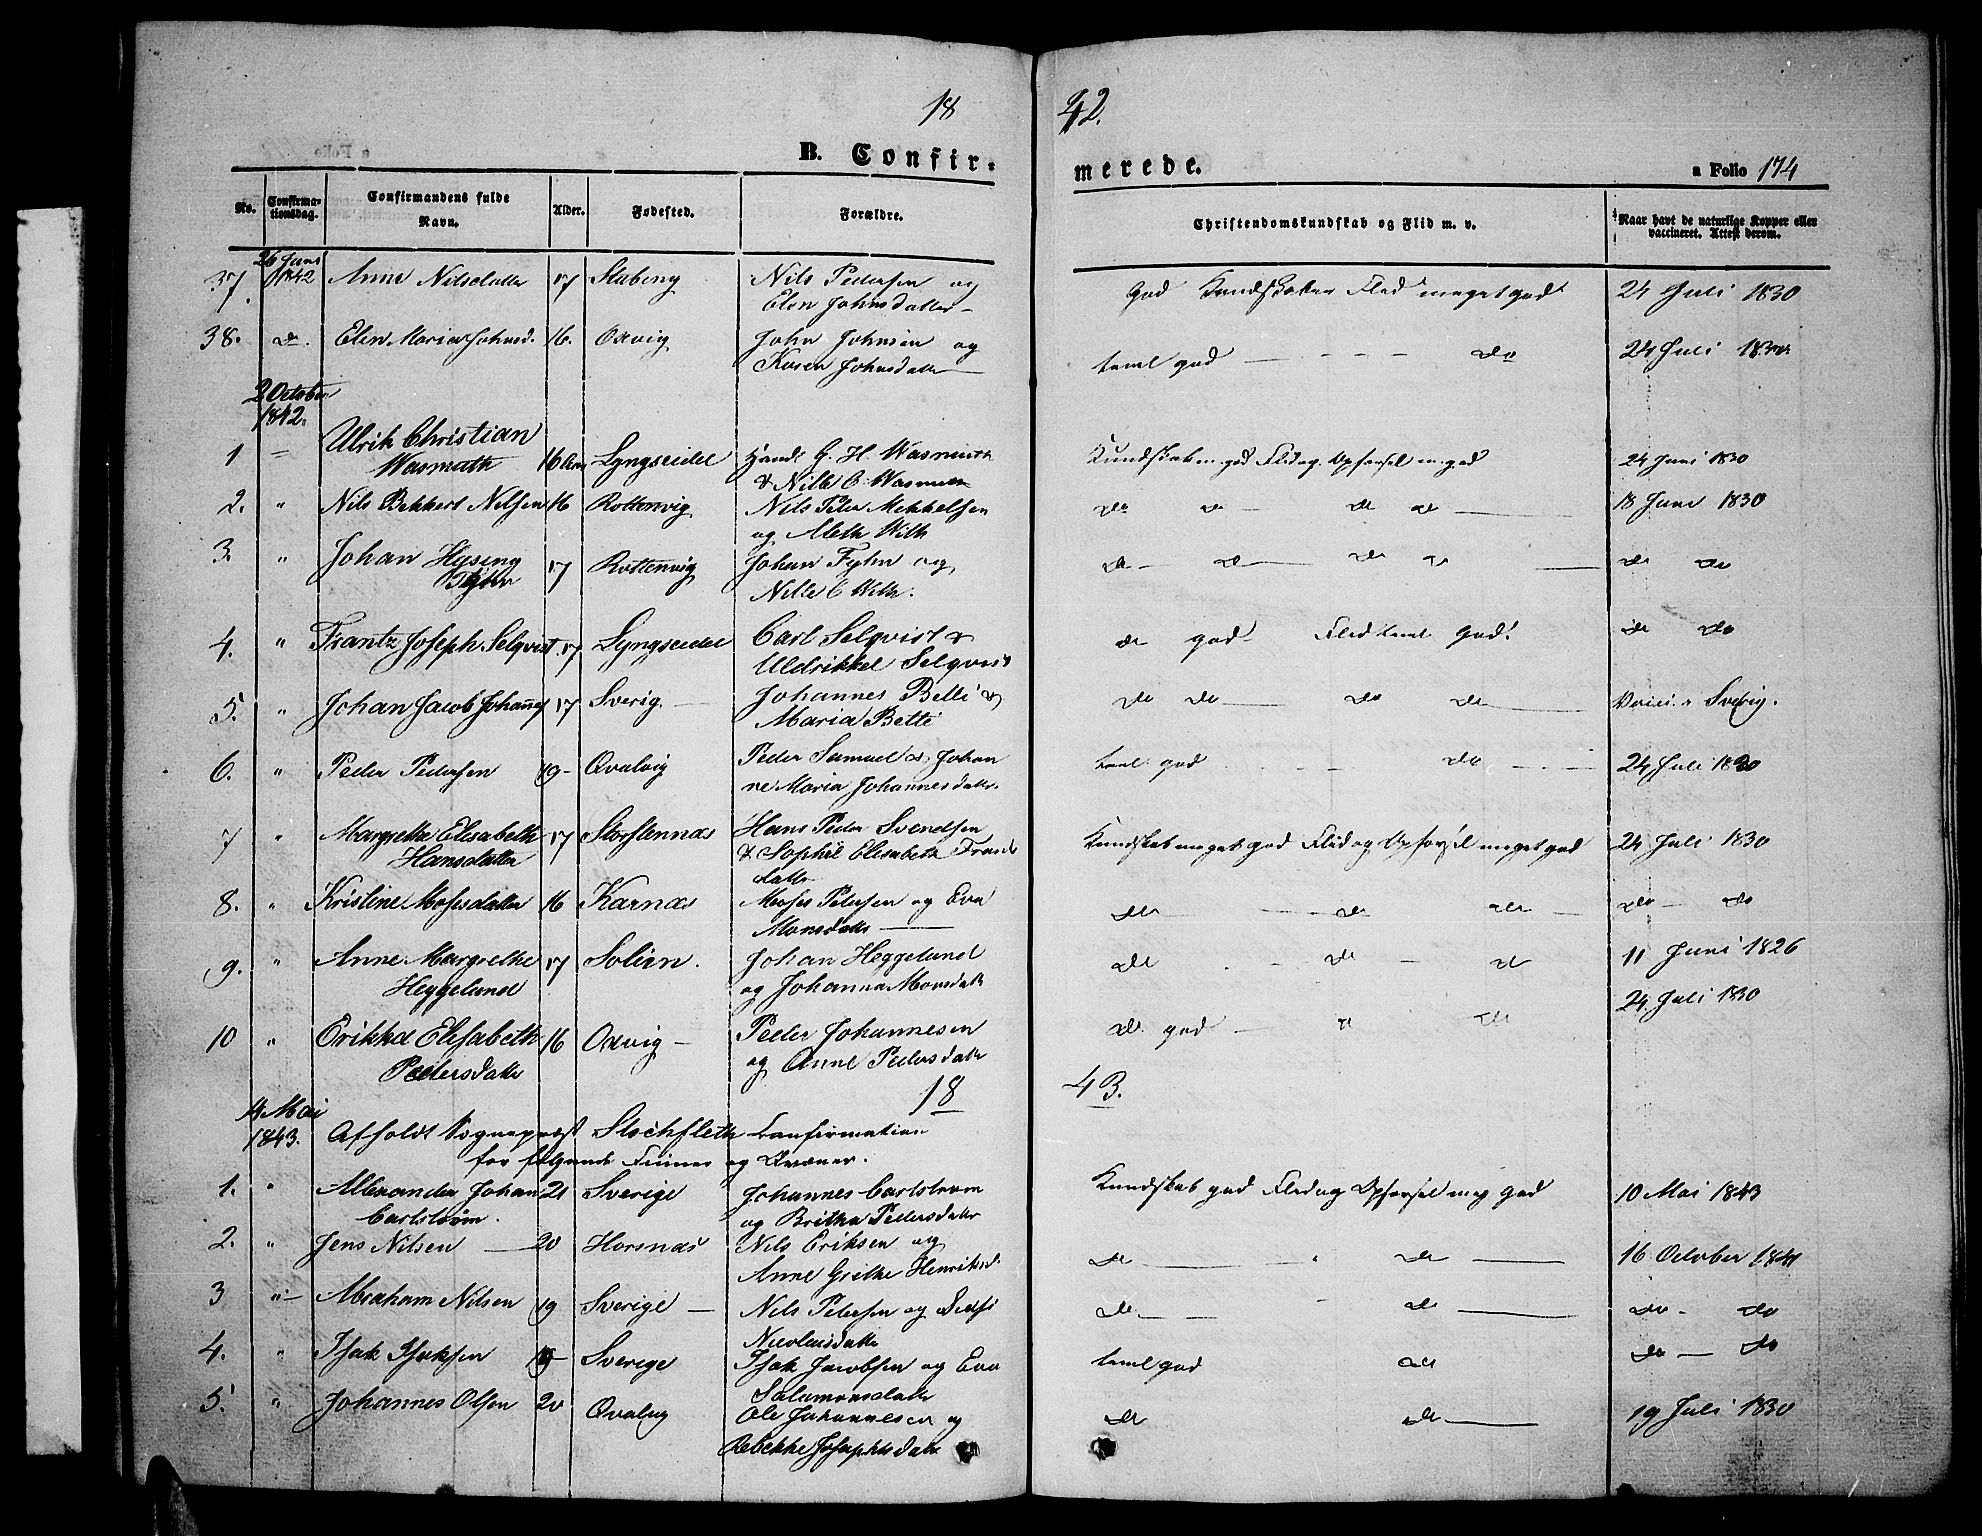 18 42.
B. Confir- merede. a Folio 174
No. Confirma-tionsdag. Confirmandens fulde Navn. Alder. Fødested. Forældre. Christendomskundskab og Flid m. v. Naar havt de naturlige Kopper eller vaccineret. Attest derom.
26 Juni
37. 1842 Anne Nilsdatter 17 Stubeng Nils Pedersen og God Kundskaber Flid meget god 24 Juli 1830
Elen Johnsdatter
38. do. Elen Maria Johnsd. 16. Oxvig John Johnsen og teml god do 24 Juli 1830
Karen Johnsdatter
2 October
1842.
Ulrik Christian
1 Wasmuth 16 Lyngseidet Handl G. H. Wasmuth Kundskab m. god Flid og Opførsel m. god 24 Juni 1830
& Nille C. Wasmuth
2. " Nils Bekkert Nilsen 16 Rottenvig Nils Peter Mikkelsen do do do do 18 Juni 1830
og Aleth With
3. " Johan Hysing 17 Rottenvig Johan Fyhn og do do do do do do
Fyhn Nille C With.
4. " Frantz Joseph Selqvist. 17 Lyngseidet Carl Selqvist & do god Flid teml God. do do
Uldrikke Selqvist
5. " Johan Jacob Johannes 17 Sverig Johannes Betti & do do do do Sverig.
Maria Betti
6. " Peder Pedersen 19 Qvalvig Peder Samuel & Johan teml god do 24 Juli 1830
ne Maria Johannesdatter.
7 " Margrethe Elisabeth 17 Storslennæs Hans Peder Svendsen Kundskab meget god Flid og Opførsel meget god 24 Juli 1830
Hansdatter & Sophie Elisabeth Frands
datter
8. " Kristine Mosesdatter 16 Karnæs Moses Petersen og Eva do do do do do
Monsdatter
9. " Anne Margrethe 17 Solien. Johan Heggelund do do do 11 Juni 1826
Heggelund og Johanna Monsdatter
10 " Erikka Elisabeth 16 Oxvig Peder Johannesen do. god " do 24. Juli 1830
Pedersdatter og Anne Pedersdatter
18 43.
4 Mai
1843. Afholdt Sognepræst Stockfleth Confirmation
for følgende Finner og Qvæner.
1. " Alexander Johan 21 Sverige Johannes Carlstrøm Kundskab god Flid og Opførsel meg god 10 Mai 1843
Carlstrøm. og Britha Pedersdatter
2. " Jens Nilsen 20 Horsnæs Nils Eriksen og do " do 16 October 1841
Anne Grethe Henriksd.
3 " Abraham Nilsen 19 Sverige Nils Petersen og do do do do
Nicolaisdatter
4. " Isak Isaksen 19 Sverige Isak Jacobsen og Eva teml god do do do
Salamonsdatter
5. " Johannes Olsen 20 Qvalvig Ole Johannesen og do do 19 Juli 1830
Rebekka Josephsdatter